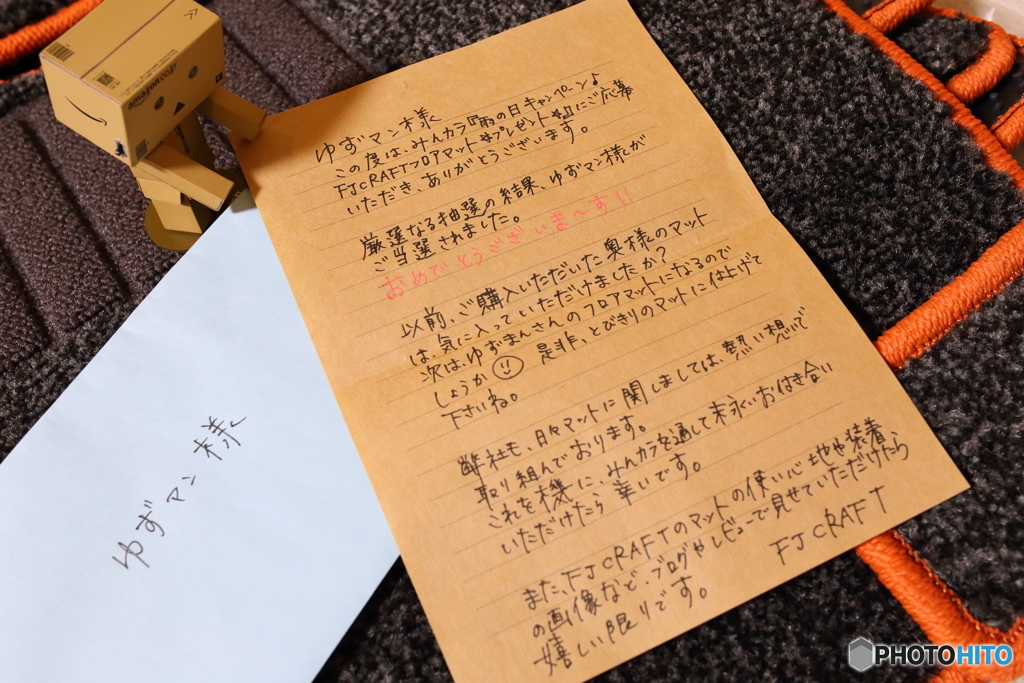 amazon.co.jp
ゆずマン様
この度は、みんカラ『雨の日キャンペーン♪
FJCRAFTフロアマット✲プレゼント✲』にご応募
いただき、ありがとうございます。
厳選なる抽選の結果、ゆずマン様が
ご当選されました。
おめでとうございま〜す!!
以前、ご購入いただいた奥様のマット
は、気に入っていただけましたか?
次は、ゆずまんさんのフロアマットになるので
しょうか 是非、とびきりのマットに仕上げて
下さいね。
弊社も、日々マットに関しましては、熱い想いで
取り組んでおります。
これを機に、みんカラを通して末永いお付き合い
いただけたら幸いです。
また、FJCRAFTのマットの使い心地や装着
の画像など、ブログやレビューで見せていただけたら
嬉しい限りです。
FJCRAFT
ゆずマン様
PHOTOHITO